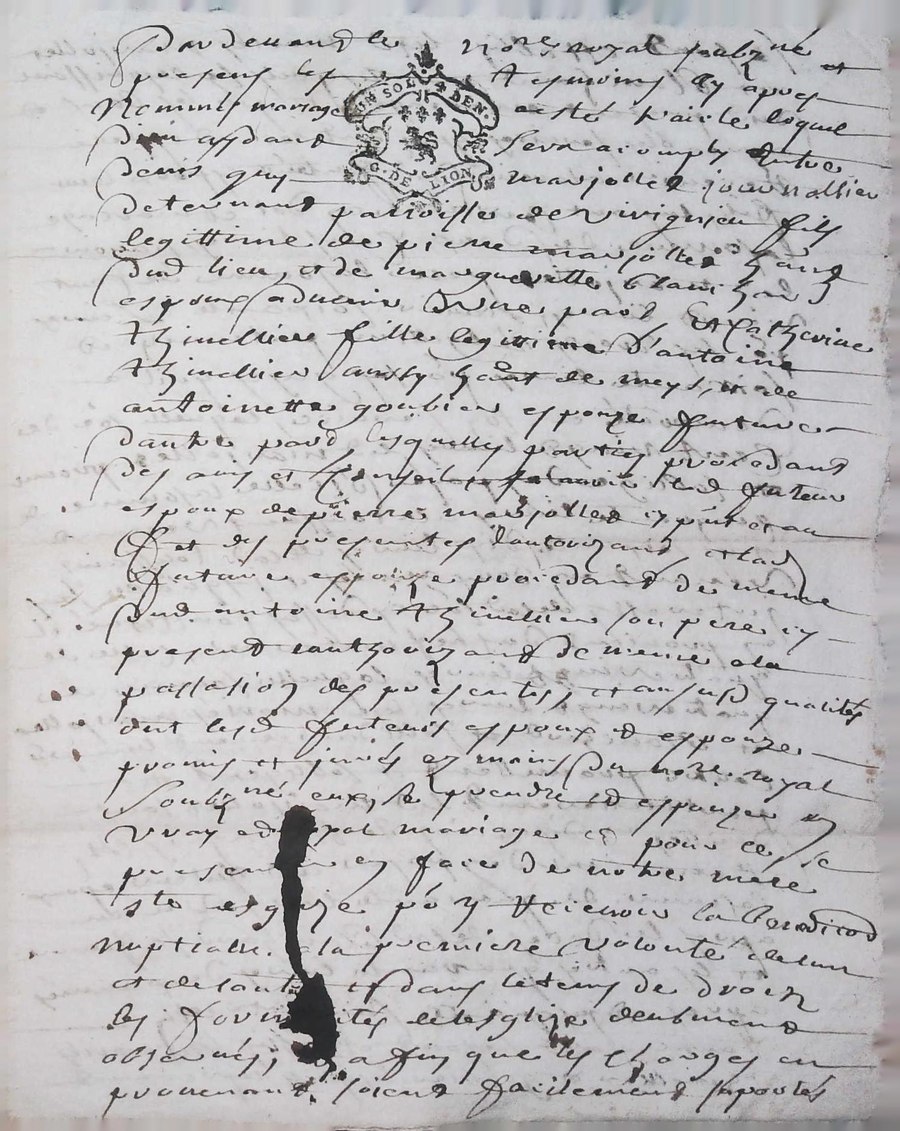 Pardevant le nore royal soubzné et
presens les tesmoins cy apres
Nommés mariage a esté traicté loquel
Dieu aydant sera acomply Entre
Denis Guy marjollet journallier
de tenant parroisse de Virignieu fils
legittime de pierre marjollet hant
dud lieu, et de margueritte blanchard
espoux aduenir d'une part Et Catherine
thimellier fille legittime d'antoine
thimellier aussy hant de meys, et de
antoinette goubier espouze future
dautre part lesquelles parties procedant
des avis et Conseils scavoir led futeur
espoux de pierre marjollet cy pnt et au
des presentes l'autorizant, et lad
future espouze procedant de meme
dud antoine thimellier son pere cy
present lauthorizant de meme a la
passasion des presentes, et au susd qualités
ont lesd futeurs espoux et espouze
promis et jurés es mains du nore royal
Soubzné eux, se prendre et espouzer en
vray et loyal mariage et pour ce se
presenter en face de notre mere
ste esglize po y recevoir la benediction
nuptialle a la premiere volonté de lun
et de lautre et dans le tems de droit
les formalités de lesglize deubment
observés; afin que les charges en
provenant soient facilement suportés
UN SOL 4 DEN.
G. DE LION